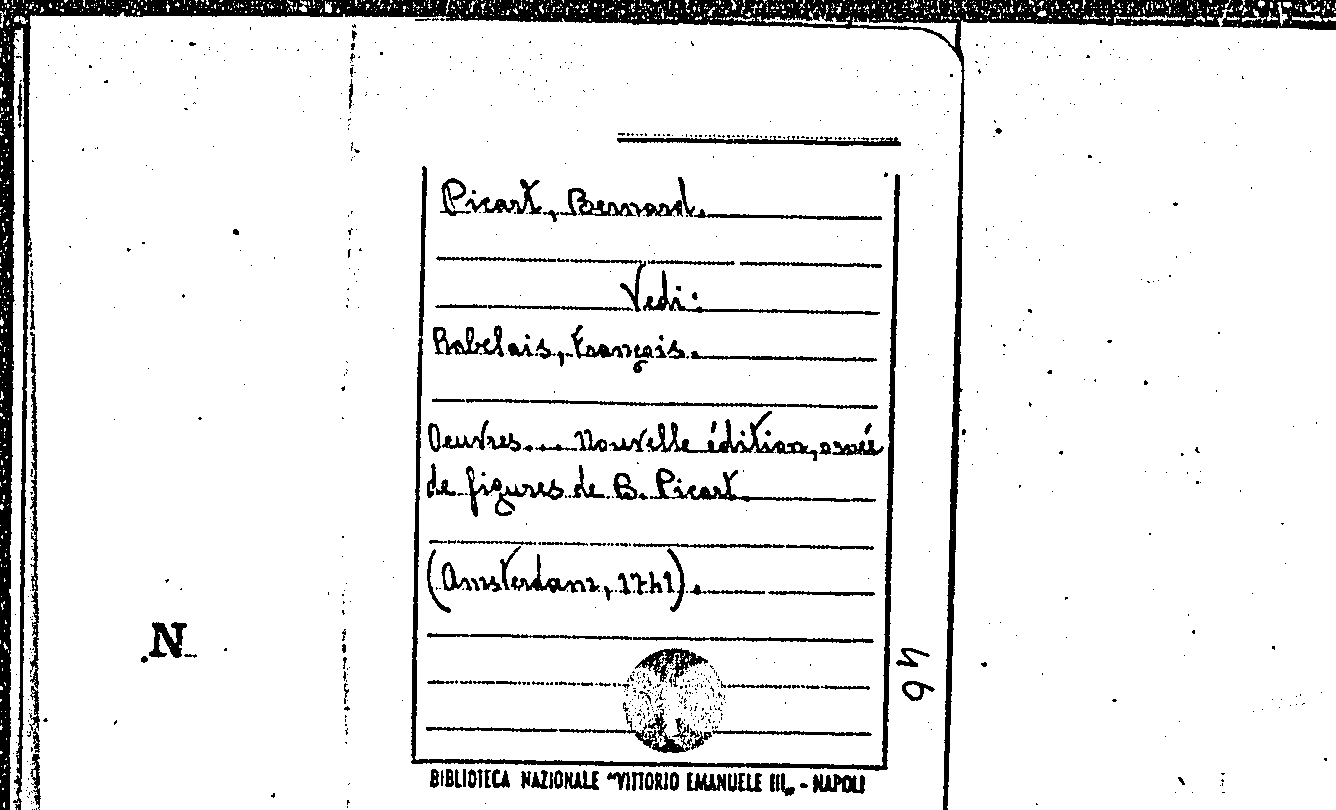 Picart, Bernard.
Vedi:
Rabelais, François.
Oeuvres... Nouvelle édition, ornée
de figures de B. Picart.
(Amsterdam, 1741).
N
46
BIBLIOTECA NAZIONALE "VITTORIO EMANUELE III„ - NAPOLI